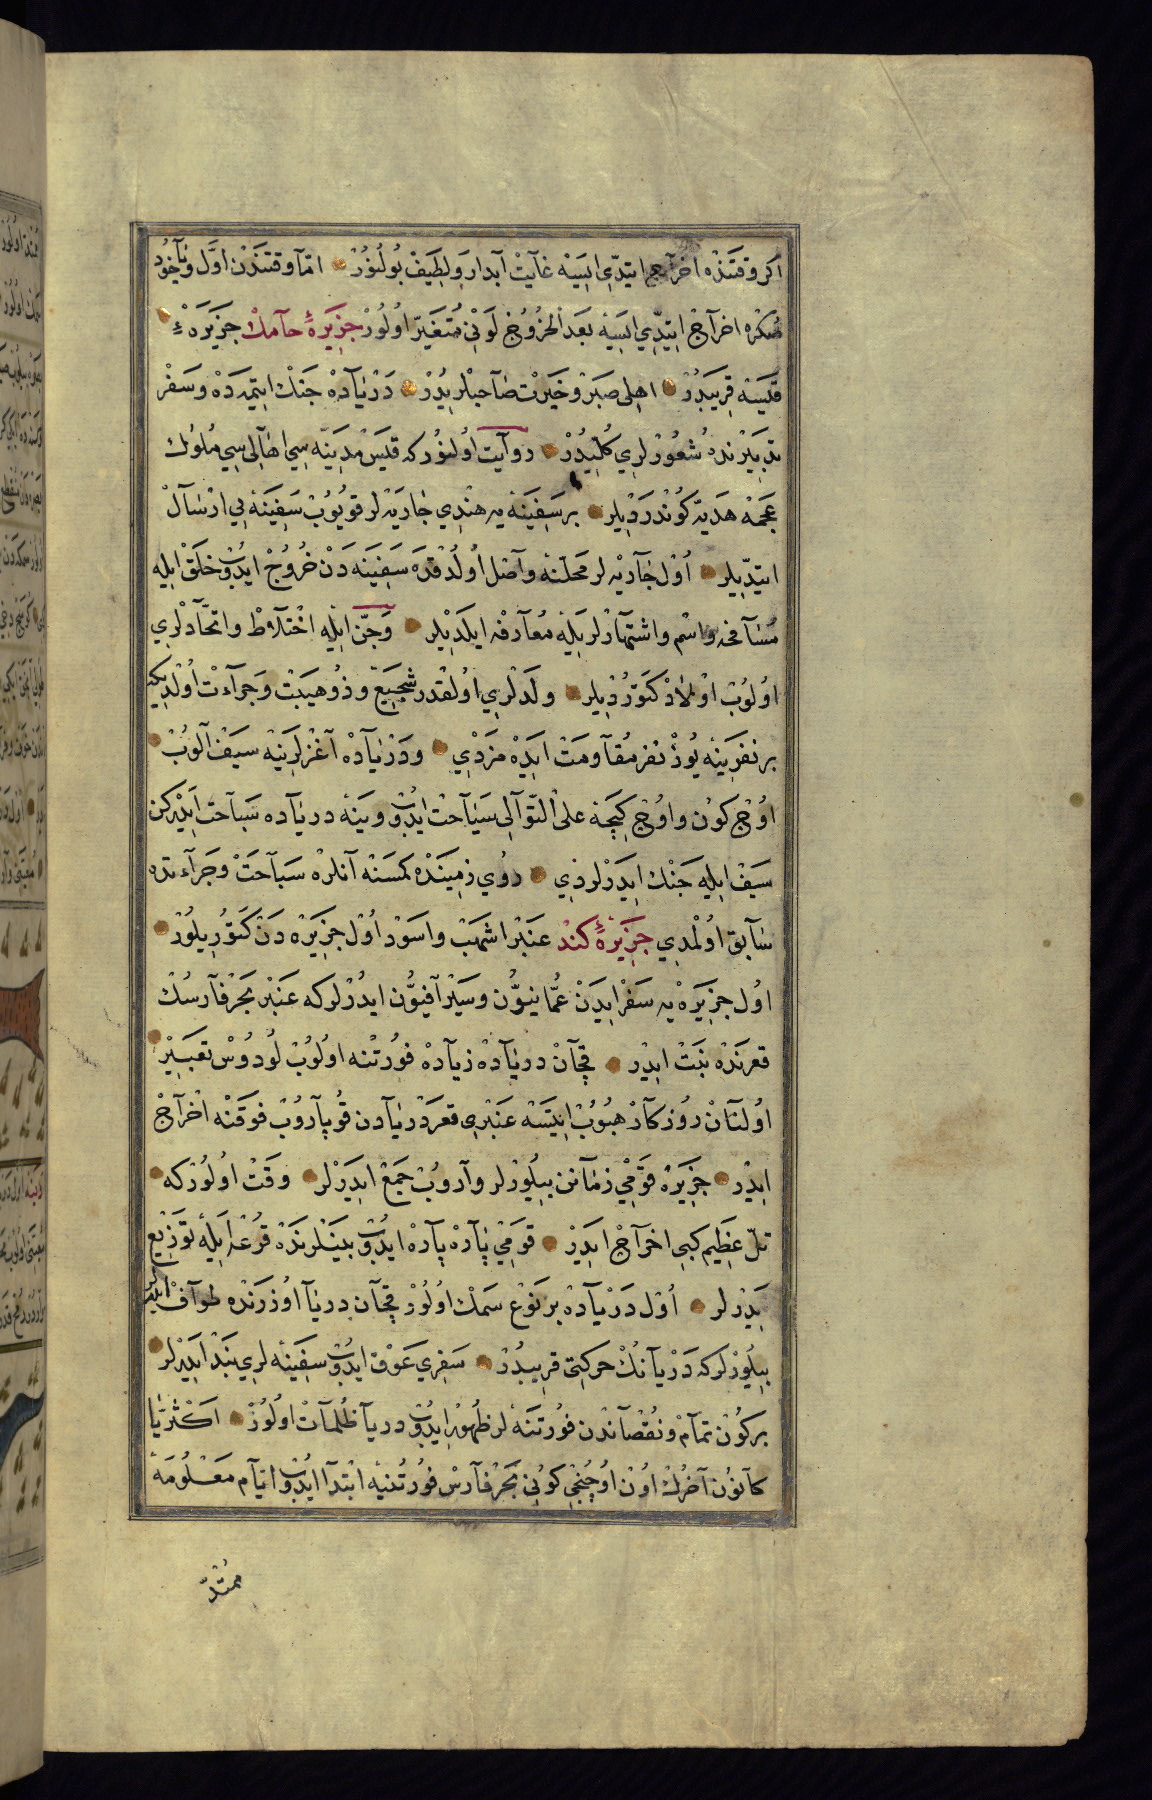 اكر وقتنده اخراج ايتدي ايسه غايت آبدار ولطيف بولنور اما وقتندن اول وياخود
صكره اخراج ايتدي ايسه بعد الخروج لوني متغير اولور جزيرهٔ حامك جزيرهٔ
قيسه قريبدر اهلى صبر وخيرت صاحبلريدر درياده جنك ايتمده وسفر
تدبيرنده شعورلري كليدر روايت اولنور كه قيس مدينه سي اهاليسي ملوك
عجمه هديه كوندرديلر بر سفينه يه هندي جاريه لر قويوب سفينه يي ارسال
ايتديلر اول جاريه لر محلنه واصل اولدقده سفينه دن خروج ايدوب خلق ايله
مسافحه واسم واشتهارلريله معارفه ايلديلر وجن ايله اختلاط واتحادلري
اولوب اولاد كتورديلر ولدلري اولقدر شجيع وذو هيبت وجراءت اولديكه
بر نفرينه يوز نفر مقاومت ايده مزدي ودرياده آغزلرينه سيف آلوب
اوچ كون واوچ كيجه على التوالى سياحت ايدوب وينه درياده سباحت ايليركن
سيف ايله جنك ايدرلردي روي زمينده كمسنه آنلره سباحت وجراءتده
سابق اولمدي جزيرهٔ كند عنبر اشهب واسود اول جزيره دن كتوريلور
اول جزيره يه سفر ايدن عمانيون وسيرافيون ايدرلر كه عنبر بحر فارسك
قعرنده نبت ايدر قچان درياده زياده فورتنه اولوب لودوس تعبير
اولنان روزكار هبوب ايتسه عنبري قعر دريادن قوپاروب فوقنه اخراج
ايدر جزيره قومي زمانن بيلورلر واروب جمع ايدرلر وقت اولور كه
تل عظيم كبي اخراج ايدر قومي پاره پاره ايدوب بينلرنده قرعه ايله توزيع
ايدرلر اول درياده بر نوع سمك اولور قچان دريا اوزرنده طواف ايدر
بيلورلر كه دريانك حركتى قريبدر سفري عوق ايدوب سفينه لري بند ايدرلر
بر كون تمام ونقصاندن فورتنه لر ظهور ايدوب دريا ظلمات اولور اكثريا
كانون آخرك اون اوچنجي كوني بحر فارس فورتنيه ابتدا ايدوب ايام معلومه
ممتد